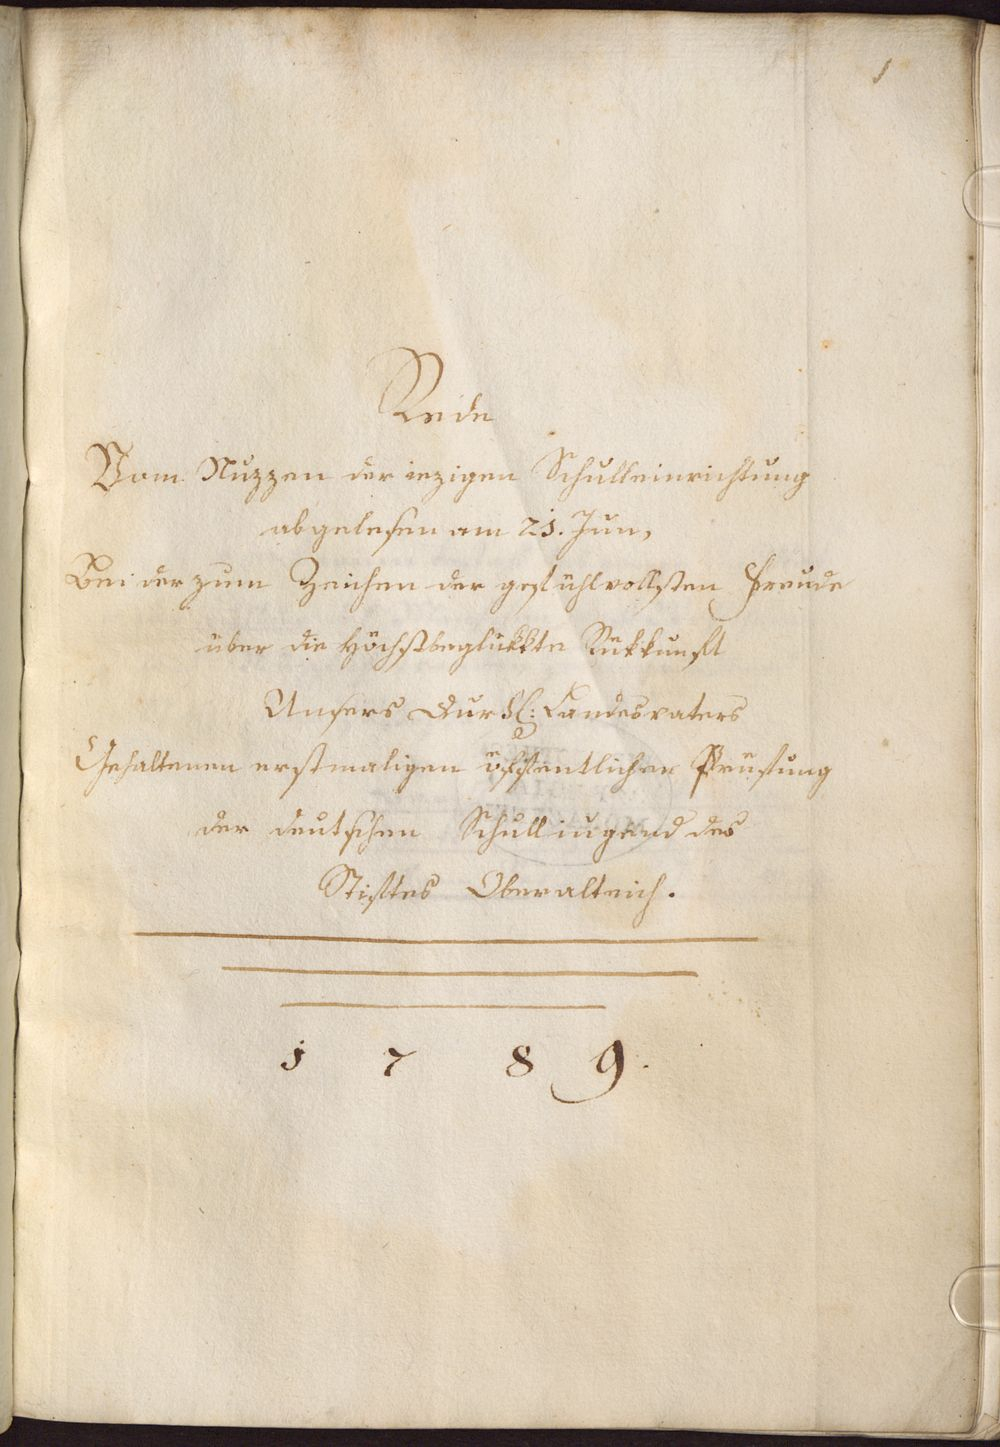 1
Rede
Vom Nuzzen der iezigen Schulleinrichtung
abgelesen am 21. Jun,
Bei der zum Zeichen der gefühlvollsten Freude
über die Höchstbeglükkte Rükkunft
Unsers Durchl: Landesvaters
Gehaltenen erstmaligen öffentlichen Prüfung
der deutschen Schulliugend des
Stiftes Oberalteich.
1 7 8 9.